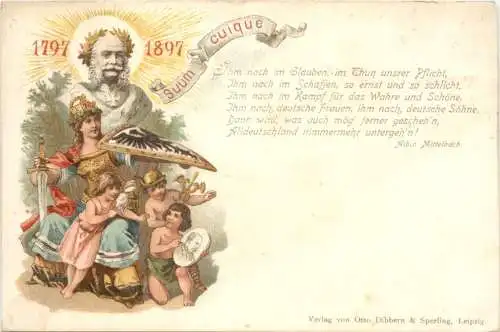 1797 1897
Suum cuique
Ihm nach im Glauben, im Thun unsrer Pflicht,
Ihm nach im Schaffen, so ernst und so schlicht,
Ihm nach im Kampf für das Wahre und Schöne,
Ihm nach, deutsche Frauen, ihm nach, deutsche Söhne,
Dann wird, was auch mög' ferner gescheh'n,
Alldeutschland nimmermehr untergeh'n!
Albin Mittelbach.
Verlag von Otto Dibbern & Sperling, Leipzig